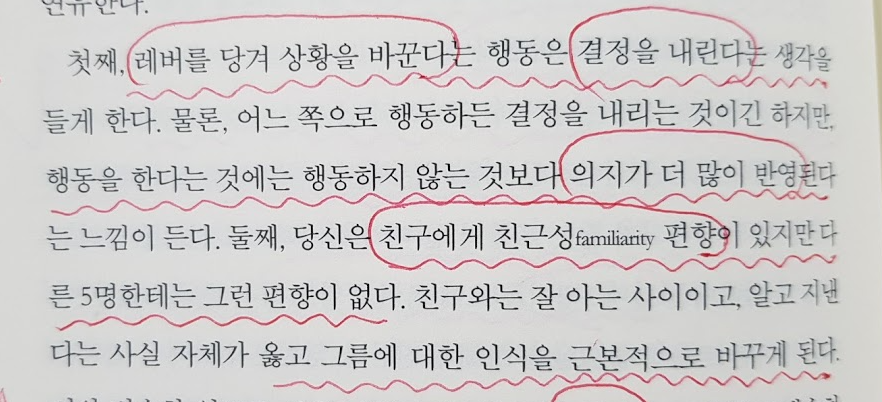 첫째, 레버를 당겨 상황을 바꾼다는 행동은 결정을 내린다는 생각을
들게 한다. 물론, 어느 쪽으로 행동하든 결정을 내리는 것이긴 하지만,
행동을 한다는 것에는 행동하지 않는 것보다 의지가 더 많이 반영된다
는 느낌이 든다. 둘째, 당신은 친구에게 친근성familiarity 편향이 있지만 다
른 5명한테는 그런 편향이 없다. 친구와는 잘 아는 사이이고, 알고 지낸
다는 사실 자체가 옳고 그름에 대한 인식을 근본적으로 바꾸게 된다.